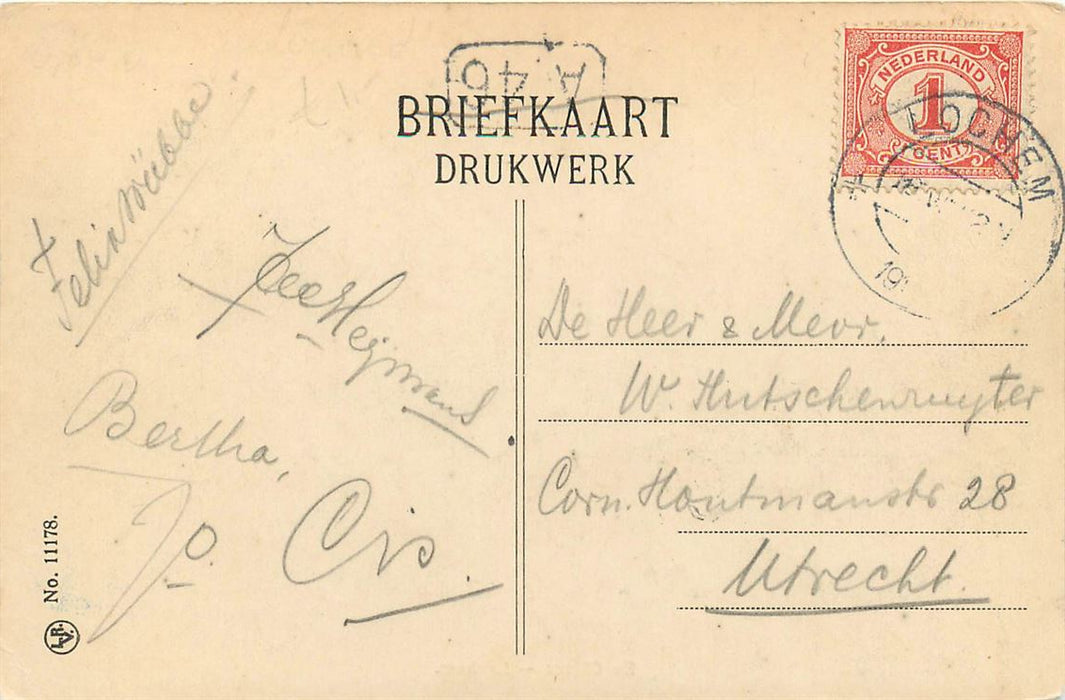 A. 40
BRIEFKAART
DRUKWERK
NEDERLAND
1
CENT
LOCHEM
19
Felix
Heymans
Bertha,
Jo.
Cis.
De Heer & Mevr.
W. Hutschenruyter
Corn. Houtmanstr 28
Utrecht.
No. 11178.
L.R.V.